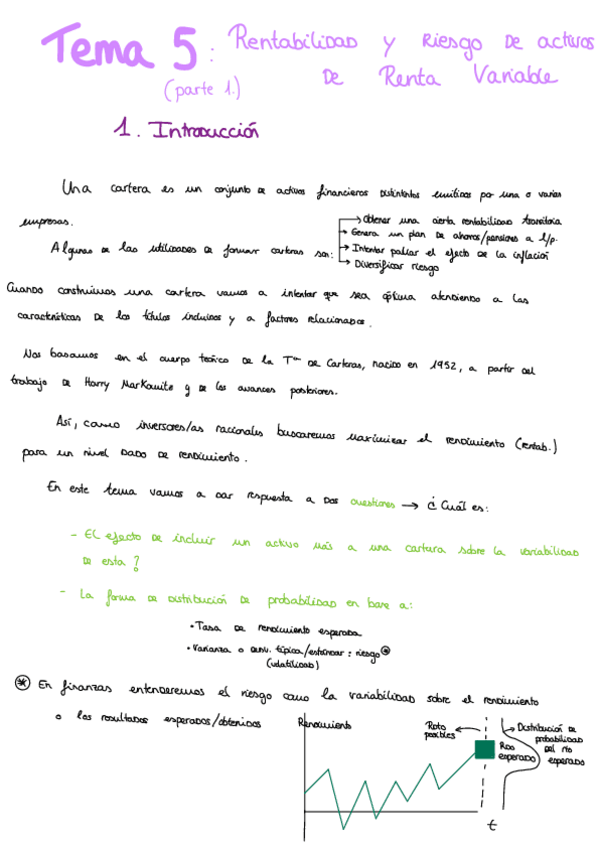 Tema 5: Rentabilidad y riesgo de activos
(parte 1.) de Renta Variable
1. Introducción
Una cartera es un conjunto de activos financieros distintintos emitidos por una o varias
empresas.
Algunas de las utilidades de formar carteras son:
→ Obtener una cierta rentabilidad transitoria
→ Genera un plan de ahorros/pensiones a l/p.
→ Intentar paliar el efecto de la inflación
→ Diversificar riesgo
Cuando construimos una cartera vamos a intentar que sea óptima atendiendo a las
características de los títulos incluidos y a factores relacionados.
Nos basamos en el cuerpo teórico de la Tª de Carteras, nacido en 1952, a partir del
trabajo de Harry Markowitz y de los avances posteriores.
Así, como inversores/as racionales buscaremos maximizar el rendimiento (rentab.)
para un nivel dado de rendimiento.
En este tema vamos a dar respuesta a dos cuestiones → ¿Cuál es:
- El efecto de incluir un activo más a una cartura sobre la variabilidad
de esta?
- La forma de distribución de probabilidad en base a:
• Tasa de rendimiento esperada
• Varianza o desv. típica/estándar: riesgo *
(volatilidad)
* En finanzas entenderemos el riesgo como la variabilidad sobre el rendimiento
o los resultados esperados/obtenidos
Rendimiento
Rdto posibles
Rdo esperado
→ Distribución de probabilidad del rto esperado
t